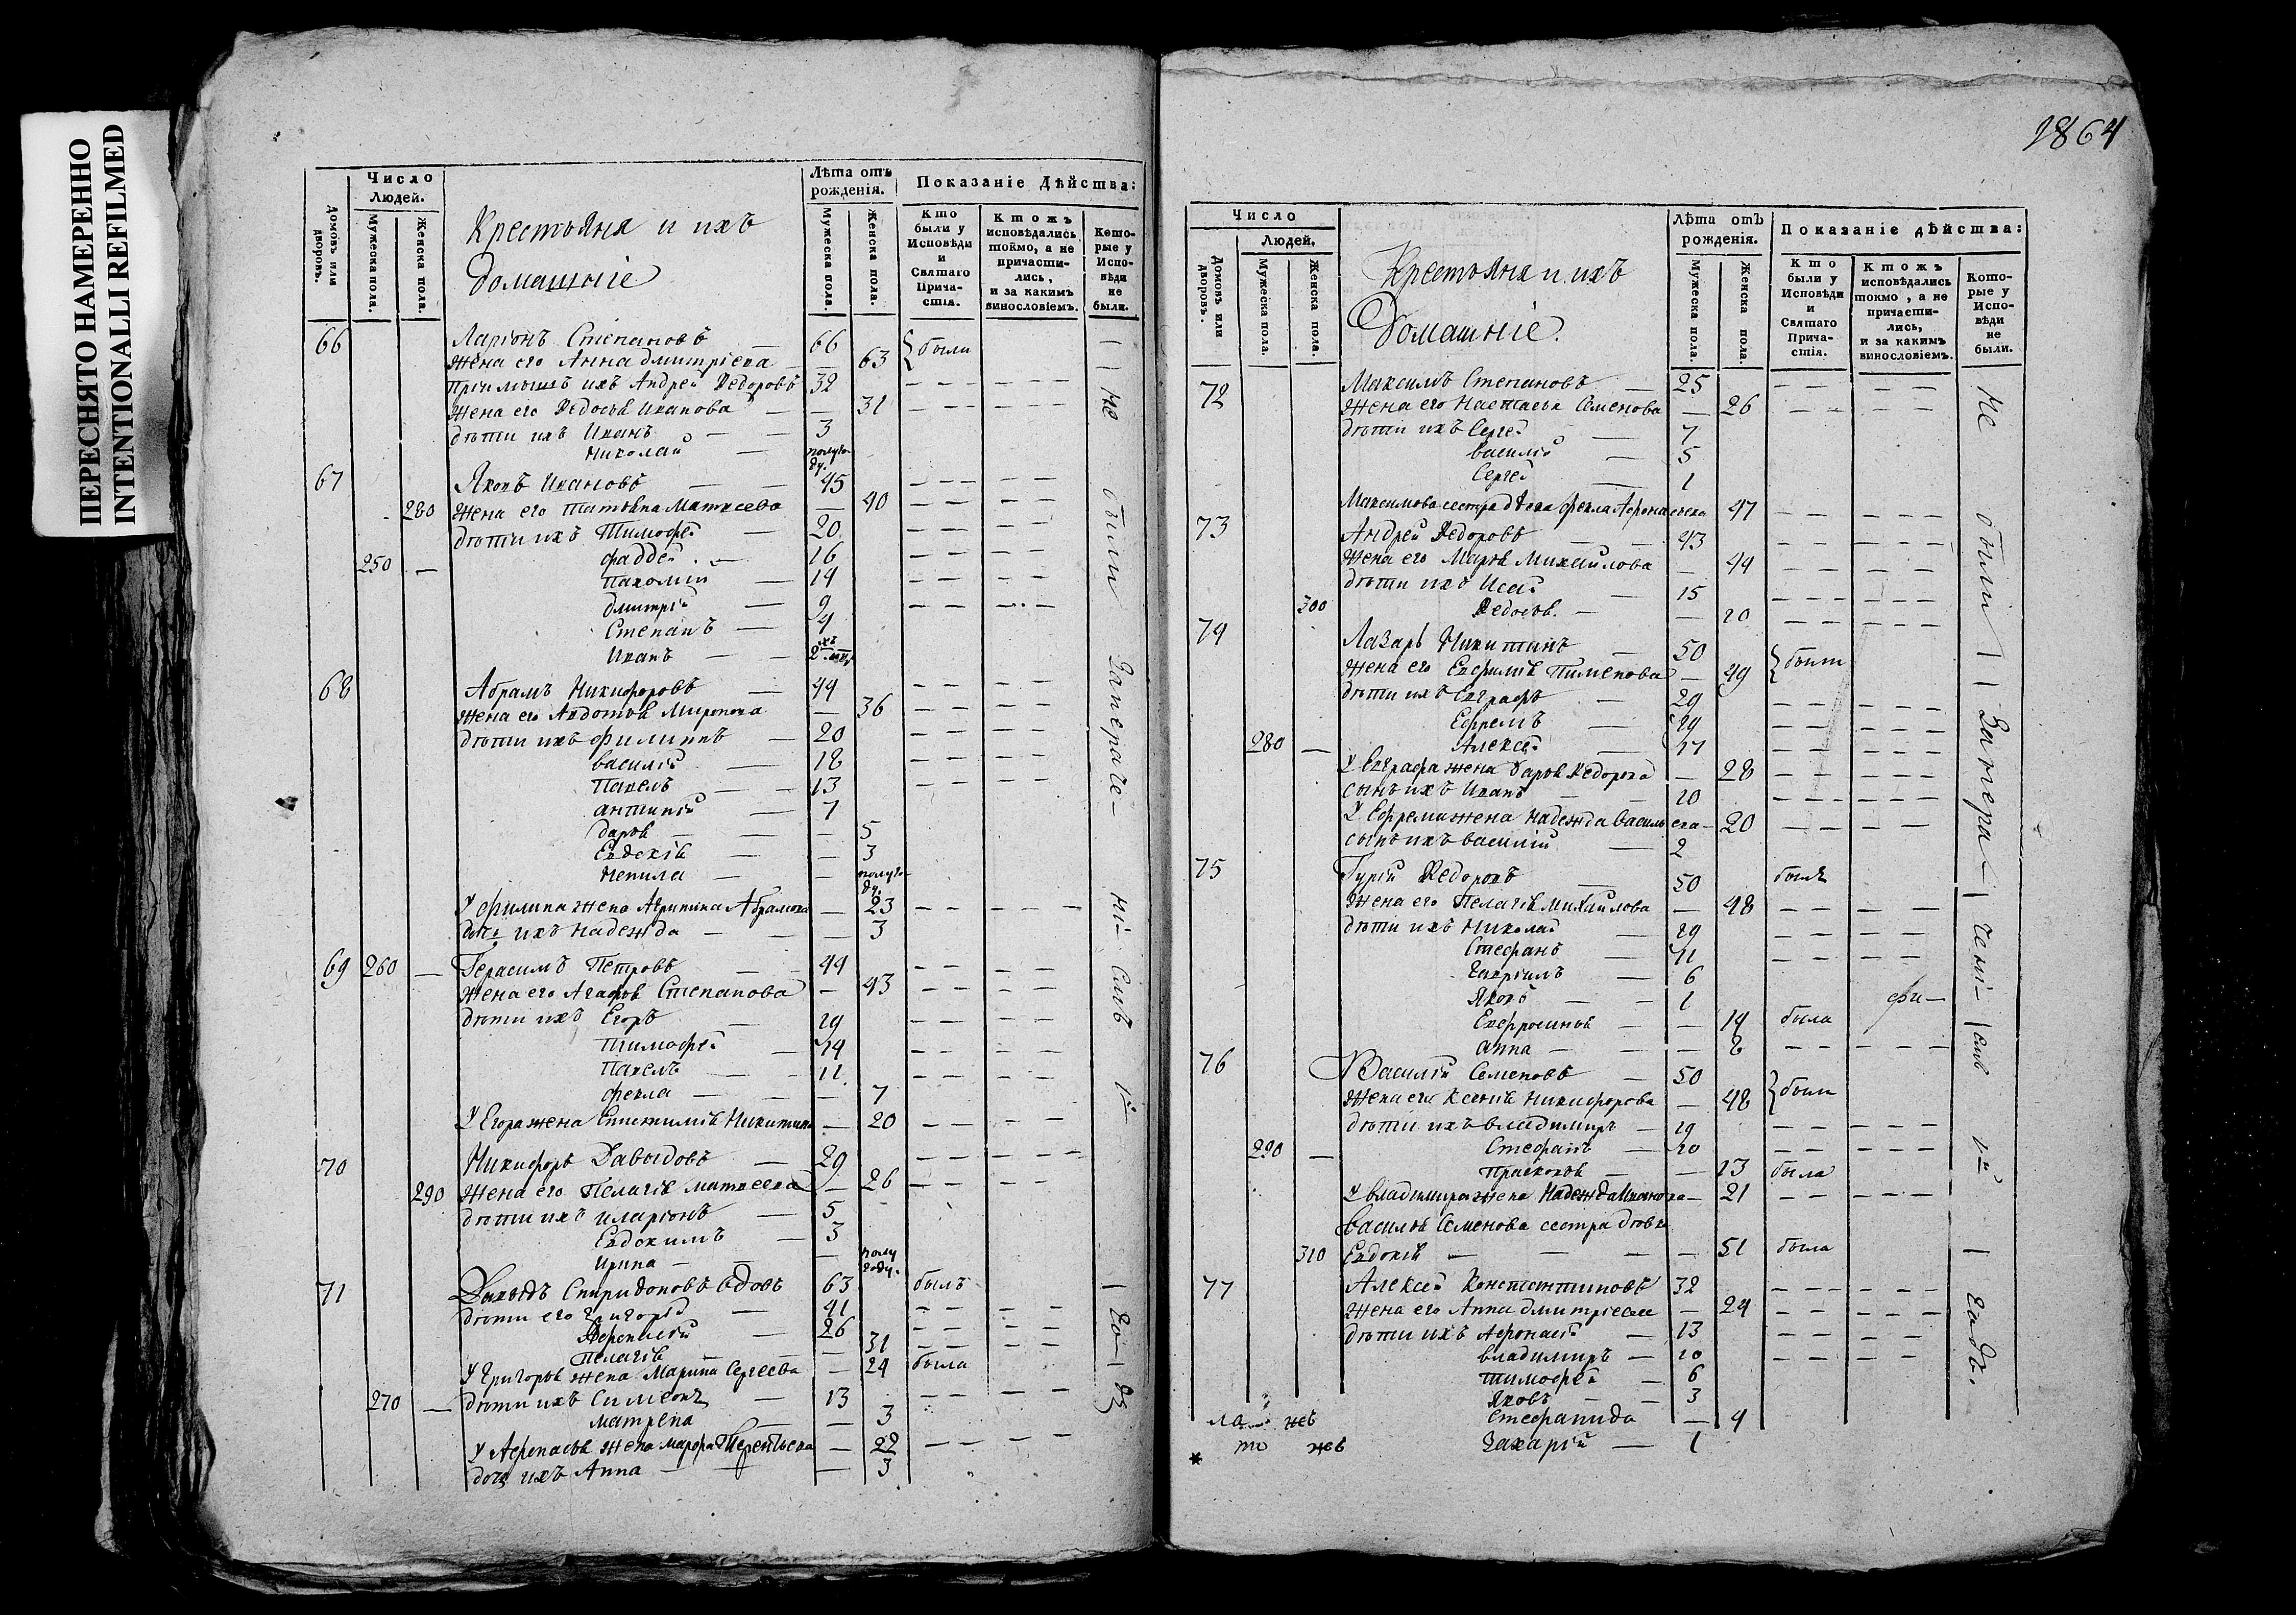 ПЕРЕСНЯТО НАМЕРЕННО
INTENTIONALLI REFILMED
Домовъ или дворовъ.
Число Людей.
Мужеска пола.
Женска пола.
Крестьяня и ихъ
домашніе
Лѣта отъ рожденія.
Мужеска пола.
Женска пола.
Показаніе Дѣйства:
Кто были у Исповѣди и Святаго Прича-стія.
Ктожъ исповѣдались токмо, а не причасти-лись, и за какимъ винословіемъ.
Кото-рые у Испо-вѣди не были.
66 Ларіонъ Степановъ — 66
жена его Анна дмитріева — 63 были
пріимышъ ихъ Андрей Ѳедоровъ 32
жена его Ѳедосья Иванова — 31
дѣти ихъ Иванъ — 3
Николай — полуго-ду.
67 Яковъ Ивановъ — 45
280 жена его Татьяна Матвеева — 40
дѣти ихъ Тимофей — 20
250 — фаддей — 16
пахомій — 14
дмитрій — 9
Степанъ — 4
Иванъ — 2
68 Абрамъ Никифоровъ — 44
жена его Авдотья Миронова — 36
дѣти ихъ Филиппъ — 20
василій — 18
Павелъ — 13
антипій — 7
дарья — 5
Евдокія — 3
Ненила — полуго-ду.
У филипа жена Агрипина Абрамова — 23
дочь ихъ надежда — 3
69 260 — Герасимъ Петровъ — 44
жена его Агафья Степанова — 43
дѣти ихъ Егоръ — 19
тимофей — 14
Павелъ — 11
фекла — 7
У Егора жена Епистимія Никитина — 20
70 Никифоръ Давыдовъ — 29
290 жена его Пелагія матвеева — 26
дѣти ихъ иларіонъ — 5
Евдокимъ — 3
Ирина — полу году.
71 Давыдъ Спиридоновъ вдовъ 63 былъ
дѣти его григорій — 41
Афонасій — 26
пелагія — 31
У григорья жена Марина Сергеева — 24 была
270 — дѣти ихъ Симеонъ — 13
матрена — 3
У Афонасья жена марфа Терентьева — 22
дочь ихъ Анна — 3
не были
1864
Домовъ или дворовъ.
Число Людей.
Мужеска пола.
Женска пола.
Крестьяня и ихъ
Домашніе.
Лѣта отъ рожденія.
Мужеска пола.
Женска пола.
Показаніе дѣйства:
Кто были у Исповѣди и Святаго Прича-стія.
Ктожъ исповѣдались токмо, а не причасти-лись, и за какимъ винословіемъ.
Кото-рые у Испо-вѣди не были.
72 Максимъ Степановъ — 25
жена его Настасья Семенова — 26
дѣти ихъ Сергей — 7
василій — 5
Сергей — 1
Максимова сестра девка фекла 47
73 Андрей Ѳедоровъ — 43
жена его Марья Михаилова — 44
дѣти ихъ Исай — 15
300 Ѳедосья — 20
74 Лазарь Никитинъ — 50
жена его Евфимія Пименова — 49 были
дѣти ихъ Евграфъ — 29
Ефремъ — 24
280 — Алексей — 17
У Евграфа жена дарья Ѳедорова — 28
сынъ ихъ Иванъ — 10
У Ефрема жена надежда васильева — 20
сынъ ихъ василій — 2
75 Гурій Ѳедоровъ — 50 былъ
жена его Пелагія михаилова — 48
дѣти ихъ Николай — 19
Стефанъ — 11
Гавріилъ — 6
Яковъ — 1
Евфросинья — 14 была
анна — 8
76 Василій Семеновъ — 50
жена его Ксенія никифорова — 48 были
дѣти ихъ владимиръ — 19
290 — Стефанъ — 10
прасковья — 13 была
У владимира жена Надежда — 21
василья Семенова сестра девка
310 Евдокія — 51 была
77 Алексей Константиновъ 32
жена его Анна дмитріева — 24
дѣти ихъ Афонасій — 13
владимиръ — 10
тимофей — 6
Яковъ — 3
Стефанида — 4
Захарій — 1
не были